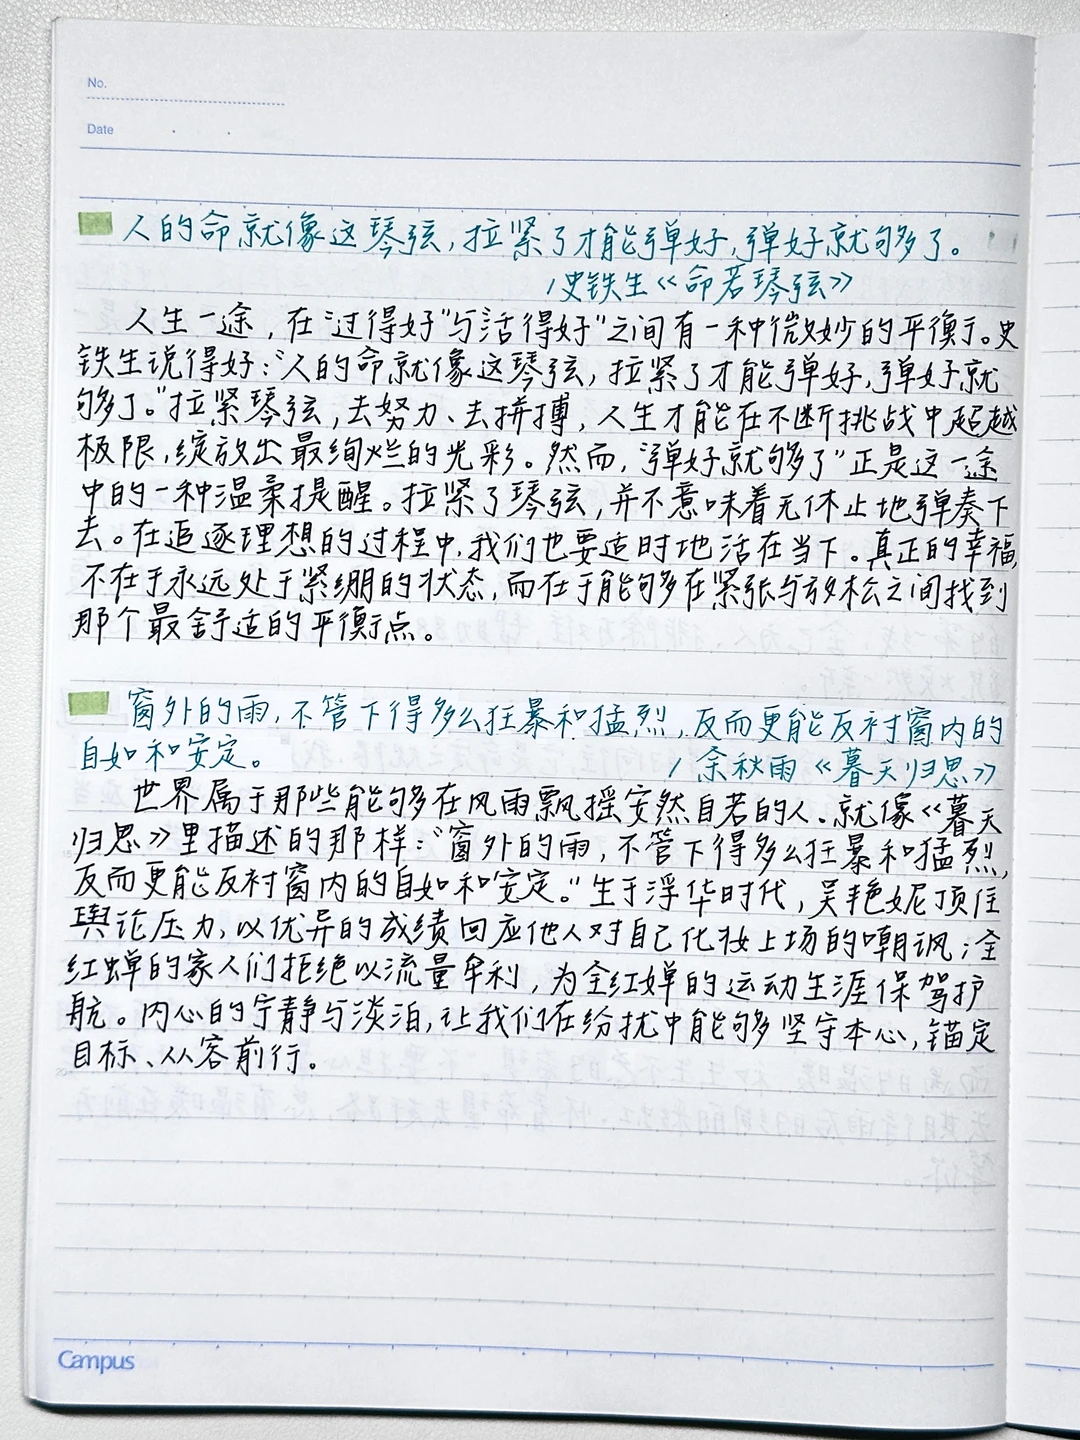 No.
Date
人的命就像这琴弦,拉紧了才能弹好,弹好就够了。
/史铁生《命若琴弦》
人生一途,在"过得好"与"活得好"之间有一种微妙的平衡。史
铁生说得好:"人的命就像这琴弦,拉紧了才能弹好,弹好就
够了。"拉紧琴弦,去努力、去拼搏,人生才能在不断挑战中超越
极限,绽放出最绚烂的光彩。然而,"弹好就够了"正是这一途
中的一种温柔提醒。拉紧了琴弦,并不意味着无休止地弹奏下
去。在追逐理想的过程中,我们也要适时地活在当下。真正的幸福,
不在于永远处于紧绷的状态,而在于能够在紧张与放松之间找到
那个最舒适的平衡点。
窗外的雨,不管下得多么狂暴和猛烈,反而更能反衬窗内的
自如和安定。
/余秋雨《暮天归思》
世界属于那些能够在风雨飘摇安然自若的人。就像《暮天
归思》里描述的那样:"窗外的雨,不管下得多么狂暴和猛烈,
反而更能反衬窗内的自如和安定。"生于浮华时代,吴艳妮顶住
舆论压力,以优异的成绩回应他人对自己化妆上场的嘲讽;全
红婵的家人们拒绝以流量牟利,为全红婵的运动生涯保驾护
航。内心的宁静与淡泊,让我们在纷扰中能够坚守本心,锚定
目标、从容前行。
Campus